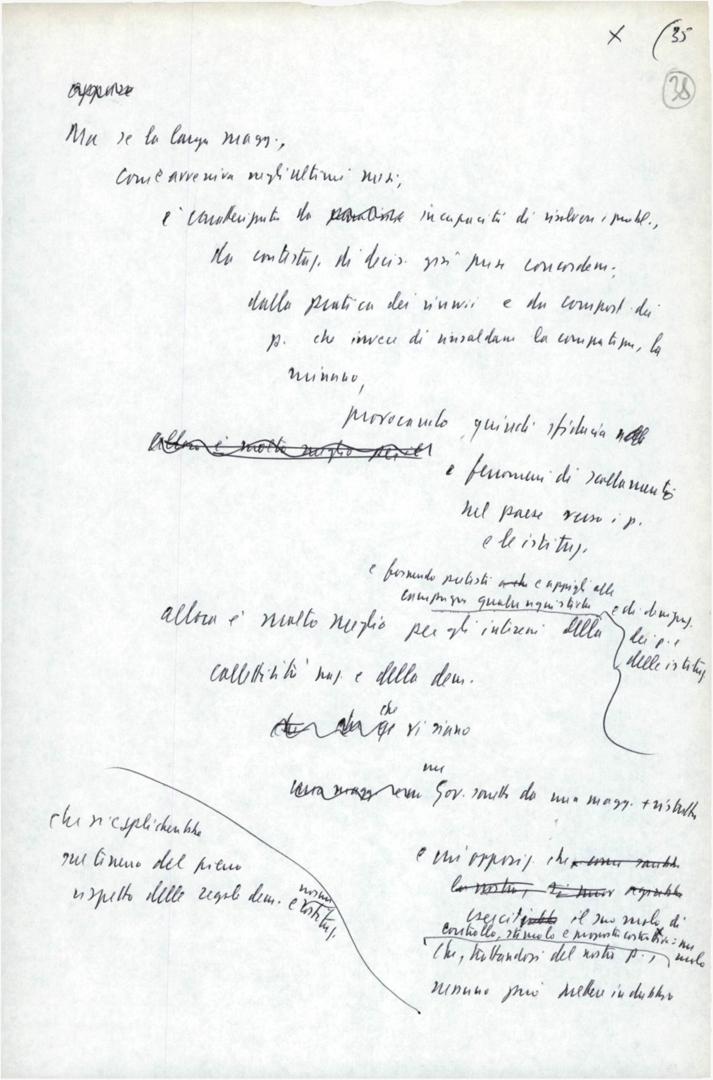 X (35
38
oppure
Ma se la larga magg.,
come avveniva negli ultimi mesi,
è caratterizzata da incapacità di risolvere i probl.,
da contestaz. di decis. già prese concordem.;
dalla pratica dei rinvii e da comport. dei
p. che invece di rinsaldare la compattezza, la
minano,
provocando quindi sfiducia
allora è molto meglio per il
e fenomeni di scollamento
nel paese verso i p.
e le istituz.
e fornendo pretesti e appigli alle
campagne qualunquistiche e di denigraz.
dei p. e
delle istituz.
allora è molto meglio per gli interessi della
collettività naz. e della dem.
che
che vi siano
un
una magg. Gov. sorretto da una magg. + ristretta
che si esplicherebbe
sul terreno del pieno
rispetto delle regole dem. e costituz.
norme
e un'opposiz. che
la nostra,
eserciti il suo ruolo di
controllo, stimolo e proposta costruttiva: un
ruolo
che, trattandosi del nostro p.,
nessuno può mettere in dubbio